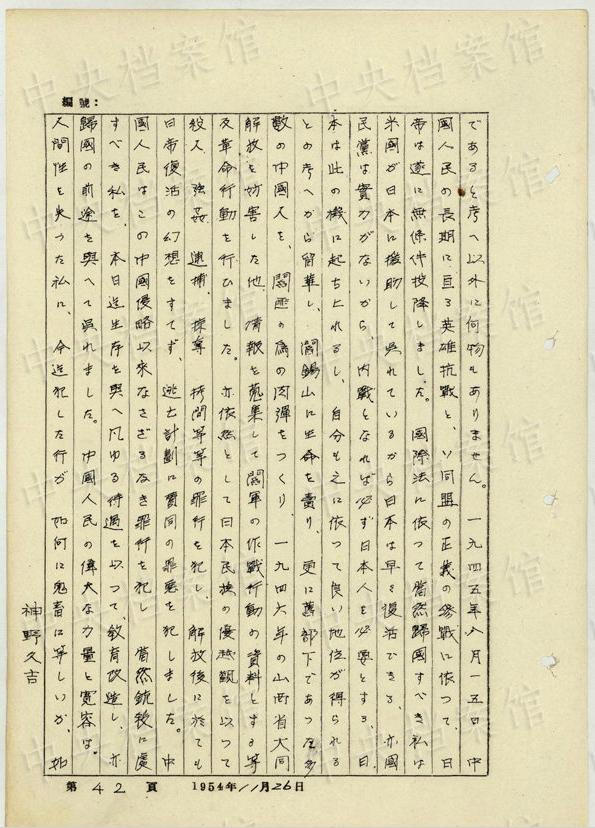 編號:
であると考へ以外に何物もありません。一九四五年八月一五日中
国人民の長期に亘る英雄抗戦と、ソ同盟の正義の参戦に依つて、日
帝は遂に無條件投降しました。国際法に依つて当然帰国すべき私は
米国が日本に援助して呉れているから日本は早く復活できる、亦国
民党は実力がないから、内戦となれば必ず日本人を必要とする、日
本は此の機に起ち上れるし、自分も之に依つて良い地位が得られる
との考へから留華し、閻錫山に生命を賣り、更に旧部下であつた多
数の中国人を、閻匪の為の肉弾をつくり、一九四六年の山西省大同
解放を妨害した他、情報を蒐集して閻軍の作戦行動の資料とする等
反革命行動を行ひました。亦依然として日本民族の優越観を以つて
殺人、強姦、逮捕、掠奪、拷問等等の罪行を犯し、解放後に於ても
日帝復活の幻想をすてず、逃亡計劃に賛同の罪悪を犯しました。中
国人民はこの中国侵略以来なさざるなき罪行を犯し、当然銃殺に處
すべき私を、本日迄生存を與へ凡ゆる待遇を以つて教育改造し、亦
帰国の前途を與へて呉れました。中国人民の偉大な力量と寛容は。
人間性を失つた私に、今迄犯した行が、如何に鬼畜に等しいか、如
神野久吉
第42頁 1954年11月26日
中央档案馆